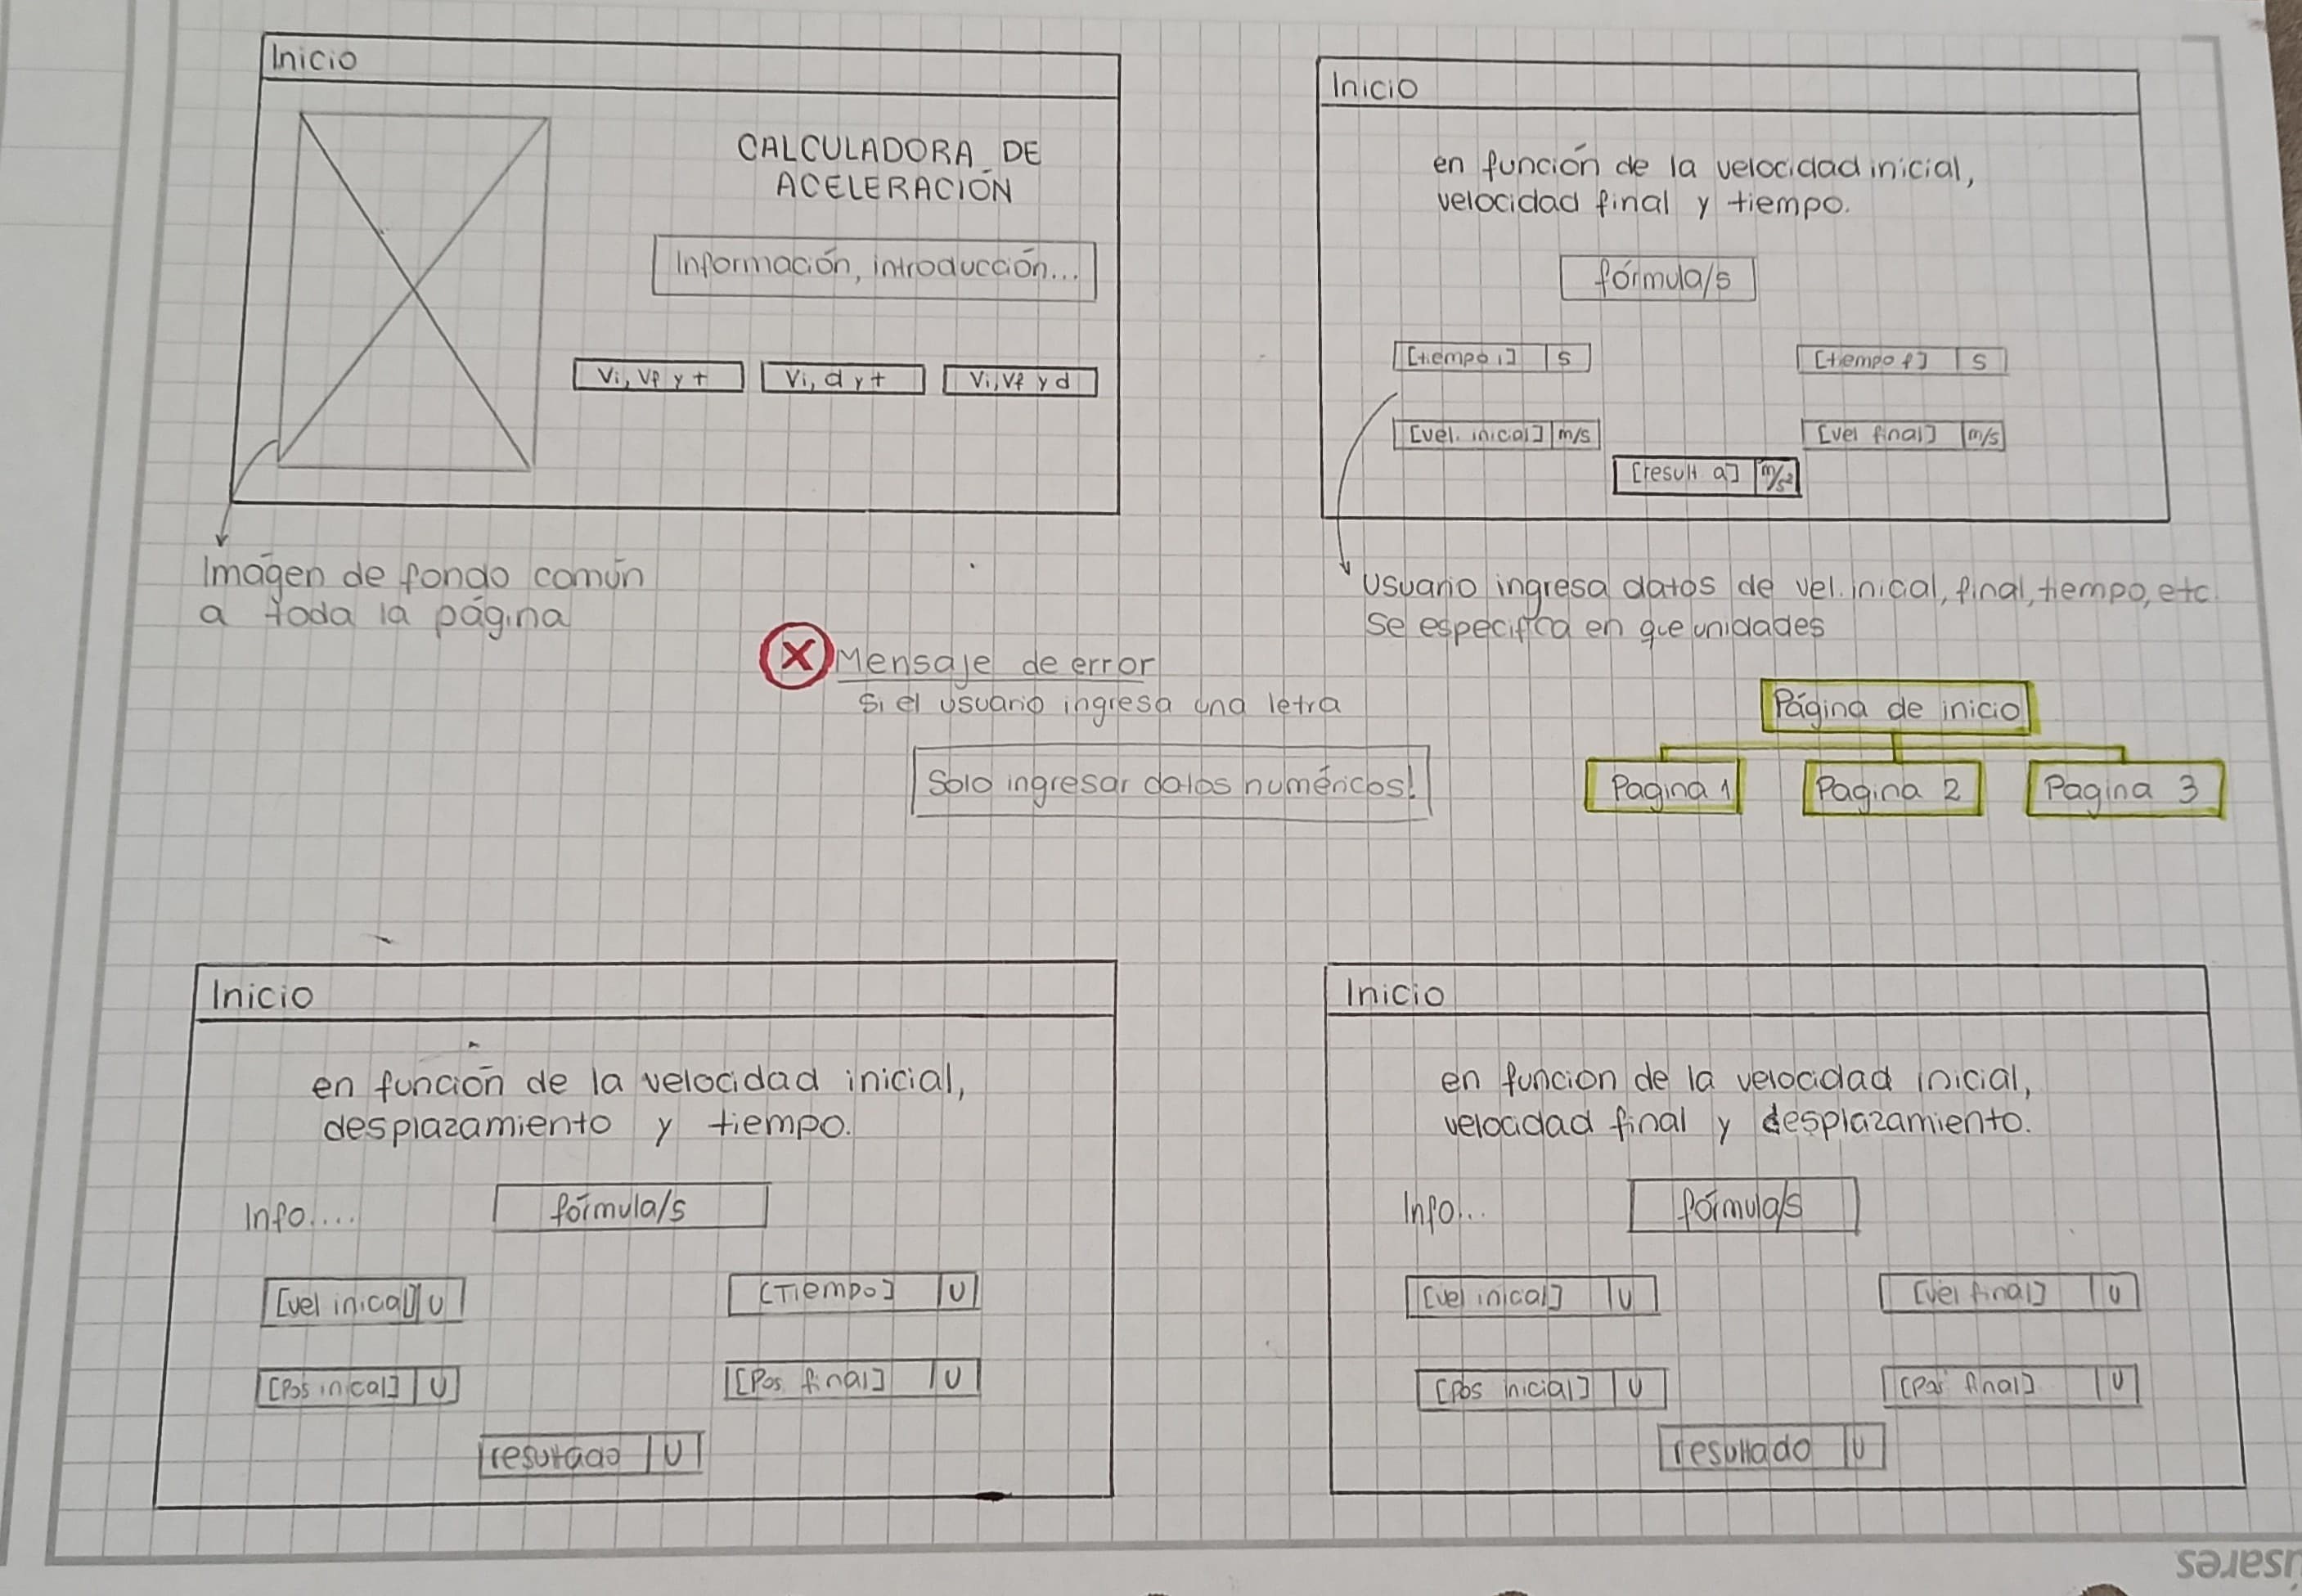 Inicio
CALCULADORA DE
ACELERACIÓN
Información, introducción...
Vi, Vf y t
Vi, d y t
Vi, Vf y d
Imágen de fondo común
a toda la página
Inicio
en función de la velocidad inicial,
velocidad final y tiempo.
fórmula/s
[tiempo i] s
[tiempo f] s
[vel. inicial] m/s
[vel final] m/s
[result a] m/s²
Usuario ingresa datos de vel. inicial, final, tiempo, etc.
Se especifica en que unidades
X Mensaje de error
Si el usuario ingresa una letra
Solo ingresar datos numéricos!
Página de inicio
Pagina 1
Pagina 2
Pagina 3
Inicio
en función de la velocidad inicial,
desplazamiento y tiempo.
Info....
fórmula/s
[vel inicial] U
[Tiempo] U
[Pos inical] U
[Pos final] U
resultado U
Inicio
en función de la velocidad inicial,
velocidad final y desplazamiento.
Info...
fórmula/s
[vel inical] U
[vel final] U
[pos inicial] U
[Pos final] U
resultado U
usares